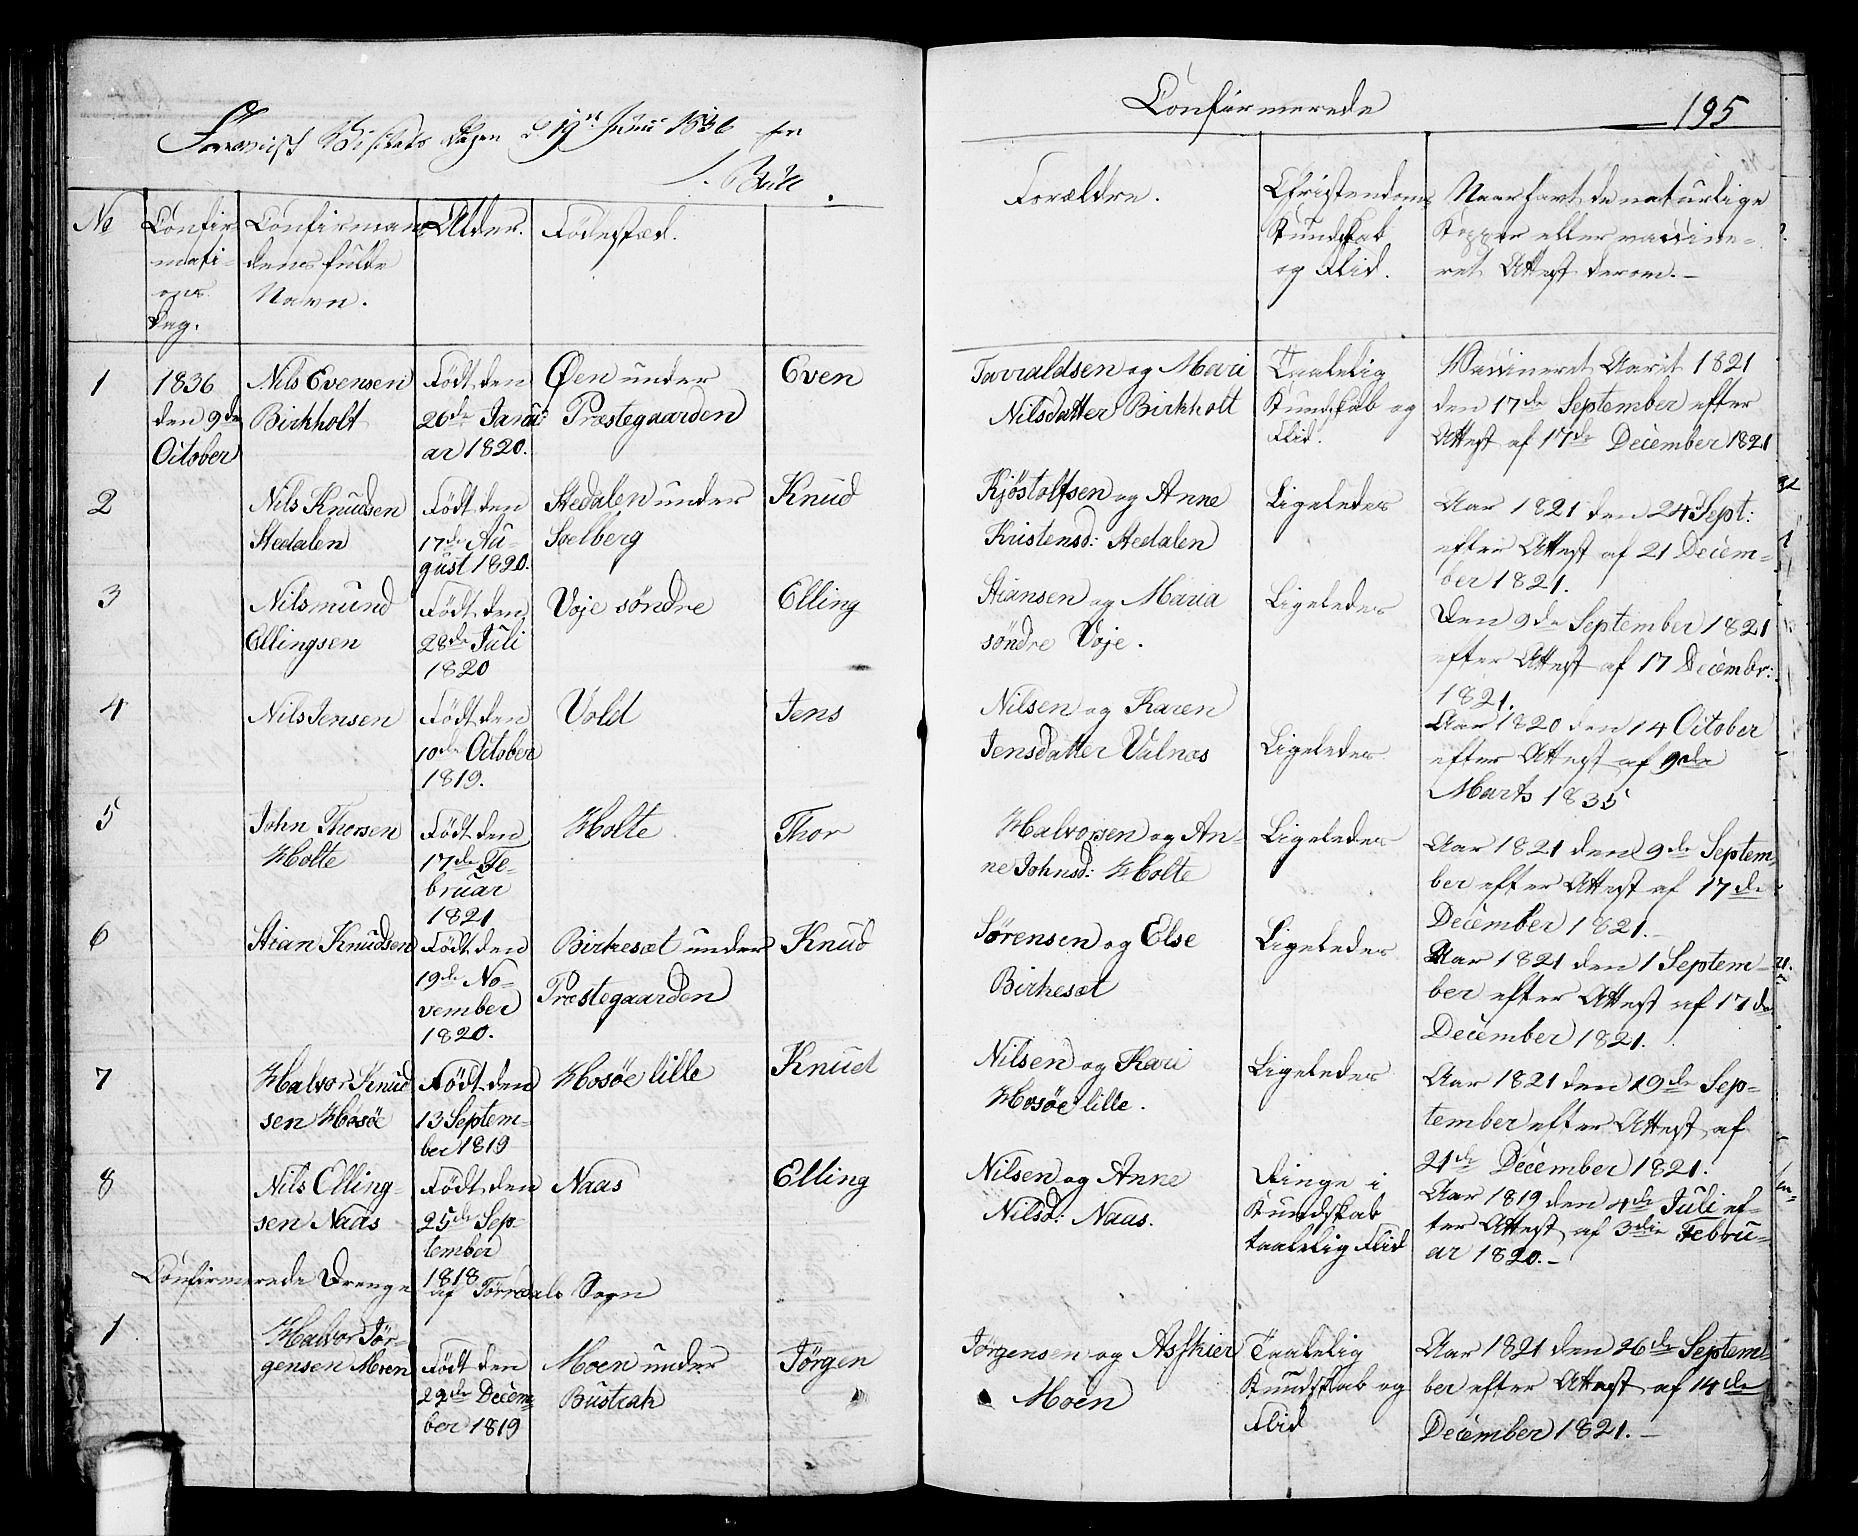 Confirmerede 195
Foreviist Visitats Dagen d 19de Junii 1836
No
Confirmations Dag.
Confirmandens fulde Navn.
Alder.
Fødested.
Forældre.
Christendoms Kundskab og Flid.
Naar havt de naturlige Kopper eller vaccineret Attest derom.-
1 1836 den 9de October Nils Evensen Birkholt Født den 26de Januar 1820. Øen under Præstegaarden Even Tarraldsen og Mari Nilsdatter Birkholt Taalelig Kundskab og Flid. Vaccineret Aaret 1821 den 17de September efter Attest af 17de December 1821
2 Nils Knudsen Stedalen Født den 17de August 1820. Stedalen under Soelberg Knud Kjöstolfsen og Anne Kristensd: Stedalen Ligeledes Aar 1821 den 24 Sept: efter Attest af 21 December 1821.
3 Nilsmund Ellingsen Født den 28de Juli 1820 Voje søndre Elling Stiansen og Maria søndre Voje. Ligeledes Den 9de September 1821 efter Attest af 17 Decembr: 1821.
4 Nils Jensen Født den 10de October 1819. Vold Jens Nilsen og Karen Jensdatter Vilnæs Ligeledes Aar 1820 den 14 October efter Attest af 9de Marts 1835
5 John Thorsen Holte Født den 17de Februar 1821 Holte Thor Halvorsen og Anne Johnsd: Holte Ligeledes Aar 1821 den 9de September efter Attest af 17de December 1821.-
6 Stian Knudsen Født den 19de November 1820. Birkesæt under Præstegaarden Knud Sørensen og Else Birkesæt Ligeledes Aar 1821 den 1 September efter Attest af 17de December 1821.
7 Halvor Knudsen Hosøe Født den 13 September 1819 Hosøe lille Knud Nilsen og Kari Hosøe lille. Ligeledes Aar 1821 den 19de September efter Attest af 21de December 1821.
8 Nils Ellingsen Naas Født den 25de September 1818 Naas Elling Nilsen og Anne Nilsd: Naas. Ringe i Kundskab taalelig Flid Aar 1819 den 4de Juli efter Attest af 3die Februar 1820.-
Confirmerede Drenge af Tørredals Sogn
1 Halvor Jørgensen Moen Født den 22de December 1819 Moen under Bustrak Jörgen Jørgensen og Asskier Moen Taalelig Kundskab og Flid Aar 1821 den 26de September efter Attest af 14de December 1821.-